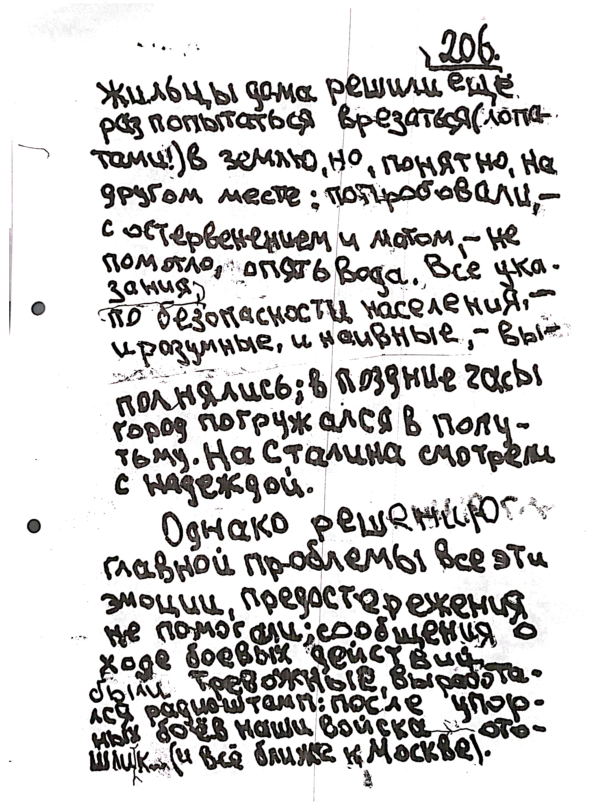 206.
жильцы дома решили ещё
раз попытаться врезаться (лопа-
тами!) в землю, но, понятно, на
другом месте; попробовали, –
с остервенением и матом, – не
помогло, опять вода. Все ука-
зания
по безопасности населения, –
и разумные, и наивные, – вы-
полнялись; в поздние часы
город погружался в полу-
тьму. На Сталина смотрели
с надеждой.
Однако решению
главной проблемы все эти
эмоции, предостережения
не помогали; сообщения о
ходе боевых действий
были тревожные, выработа-
лся радиоштамп: после упор-
ных боёв наши войска ото-
шли к... (и всё ближе к Москве).